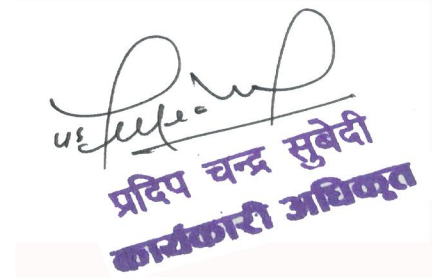 प्रदिप चन्द्र सुबेदी
कार्यकारी अधिकृत